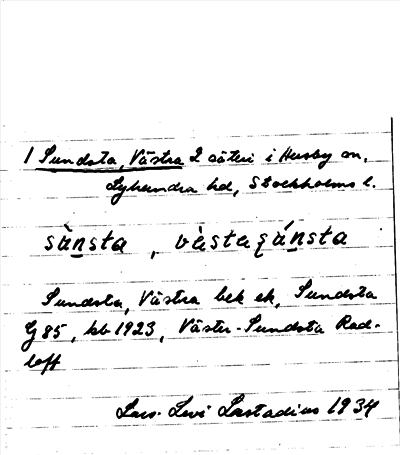 1 Sundsta, Västra 2 säteri i Husby sn,
Lyhundra hd, Stockholms l.
sàn̲sta , vàstagán̲sta
Sundsta, Västra bek ek, Sundsta
G 85, hb 1923, Väster-Sundsta Rad-
loff
Lars-Levi Læstadius 1934